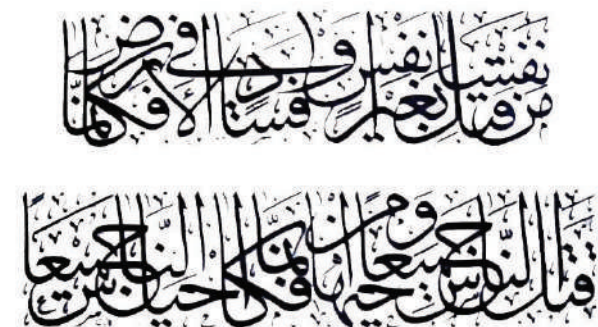 من قتل نفسا بغير نفس أو فساد في الأرض فكأنما
قتل الناس جميعا ومن أحياها فكأنما أحيا الناس جميعا